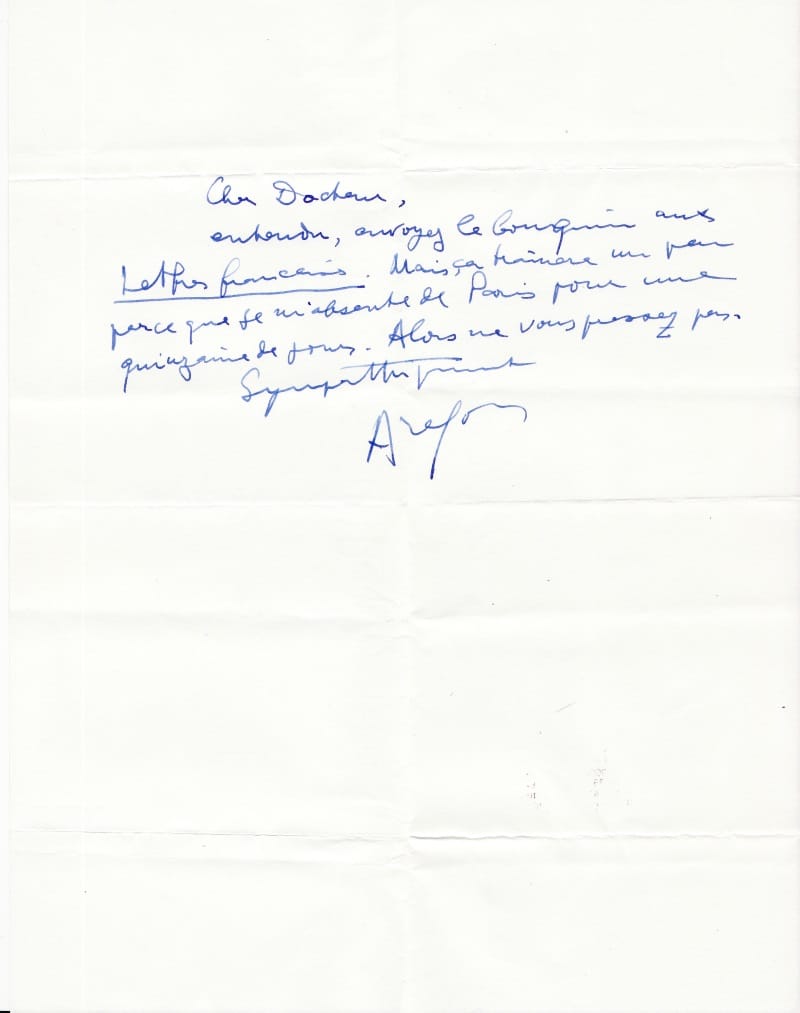 Cher Docteur,
entendu, envoyez le bouquin aux
Lettres françaises. Mais ça traînera un peu
parce que je m'absente de Paris pour une
quinzaine de jours. Alors ne vous pressez pas.
Sympathiquement
Aragon